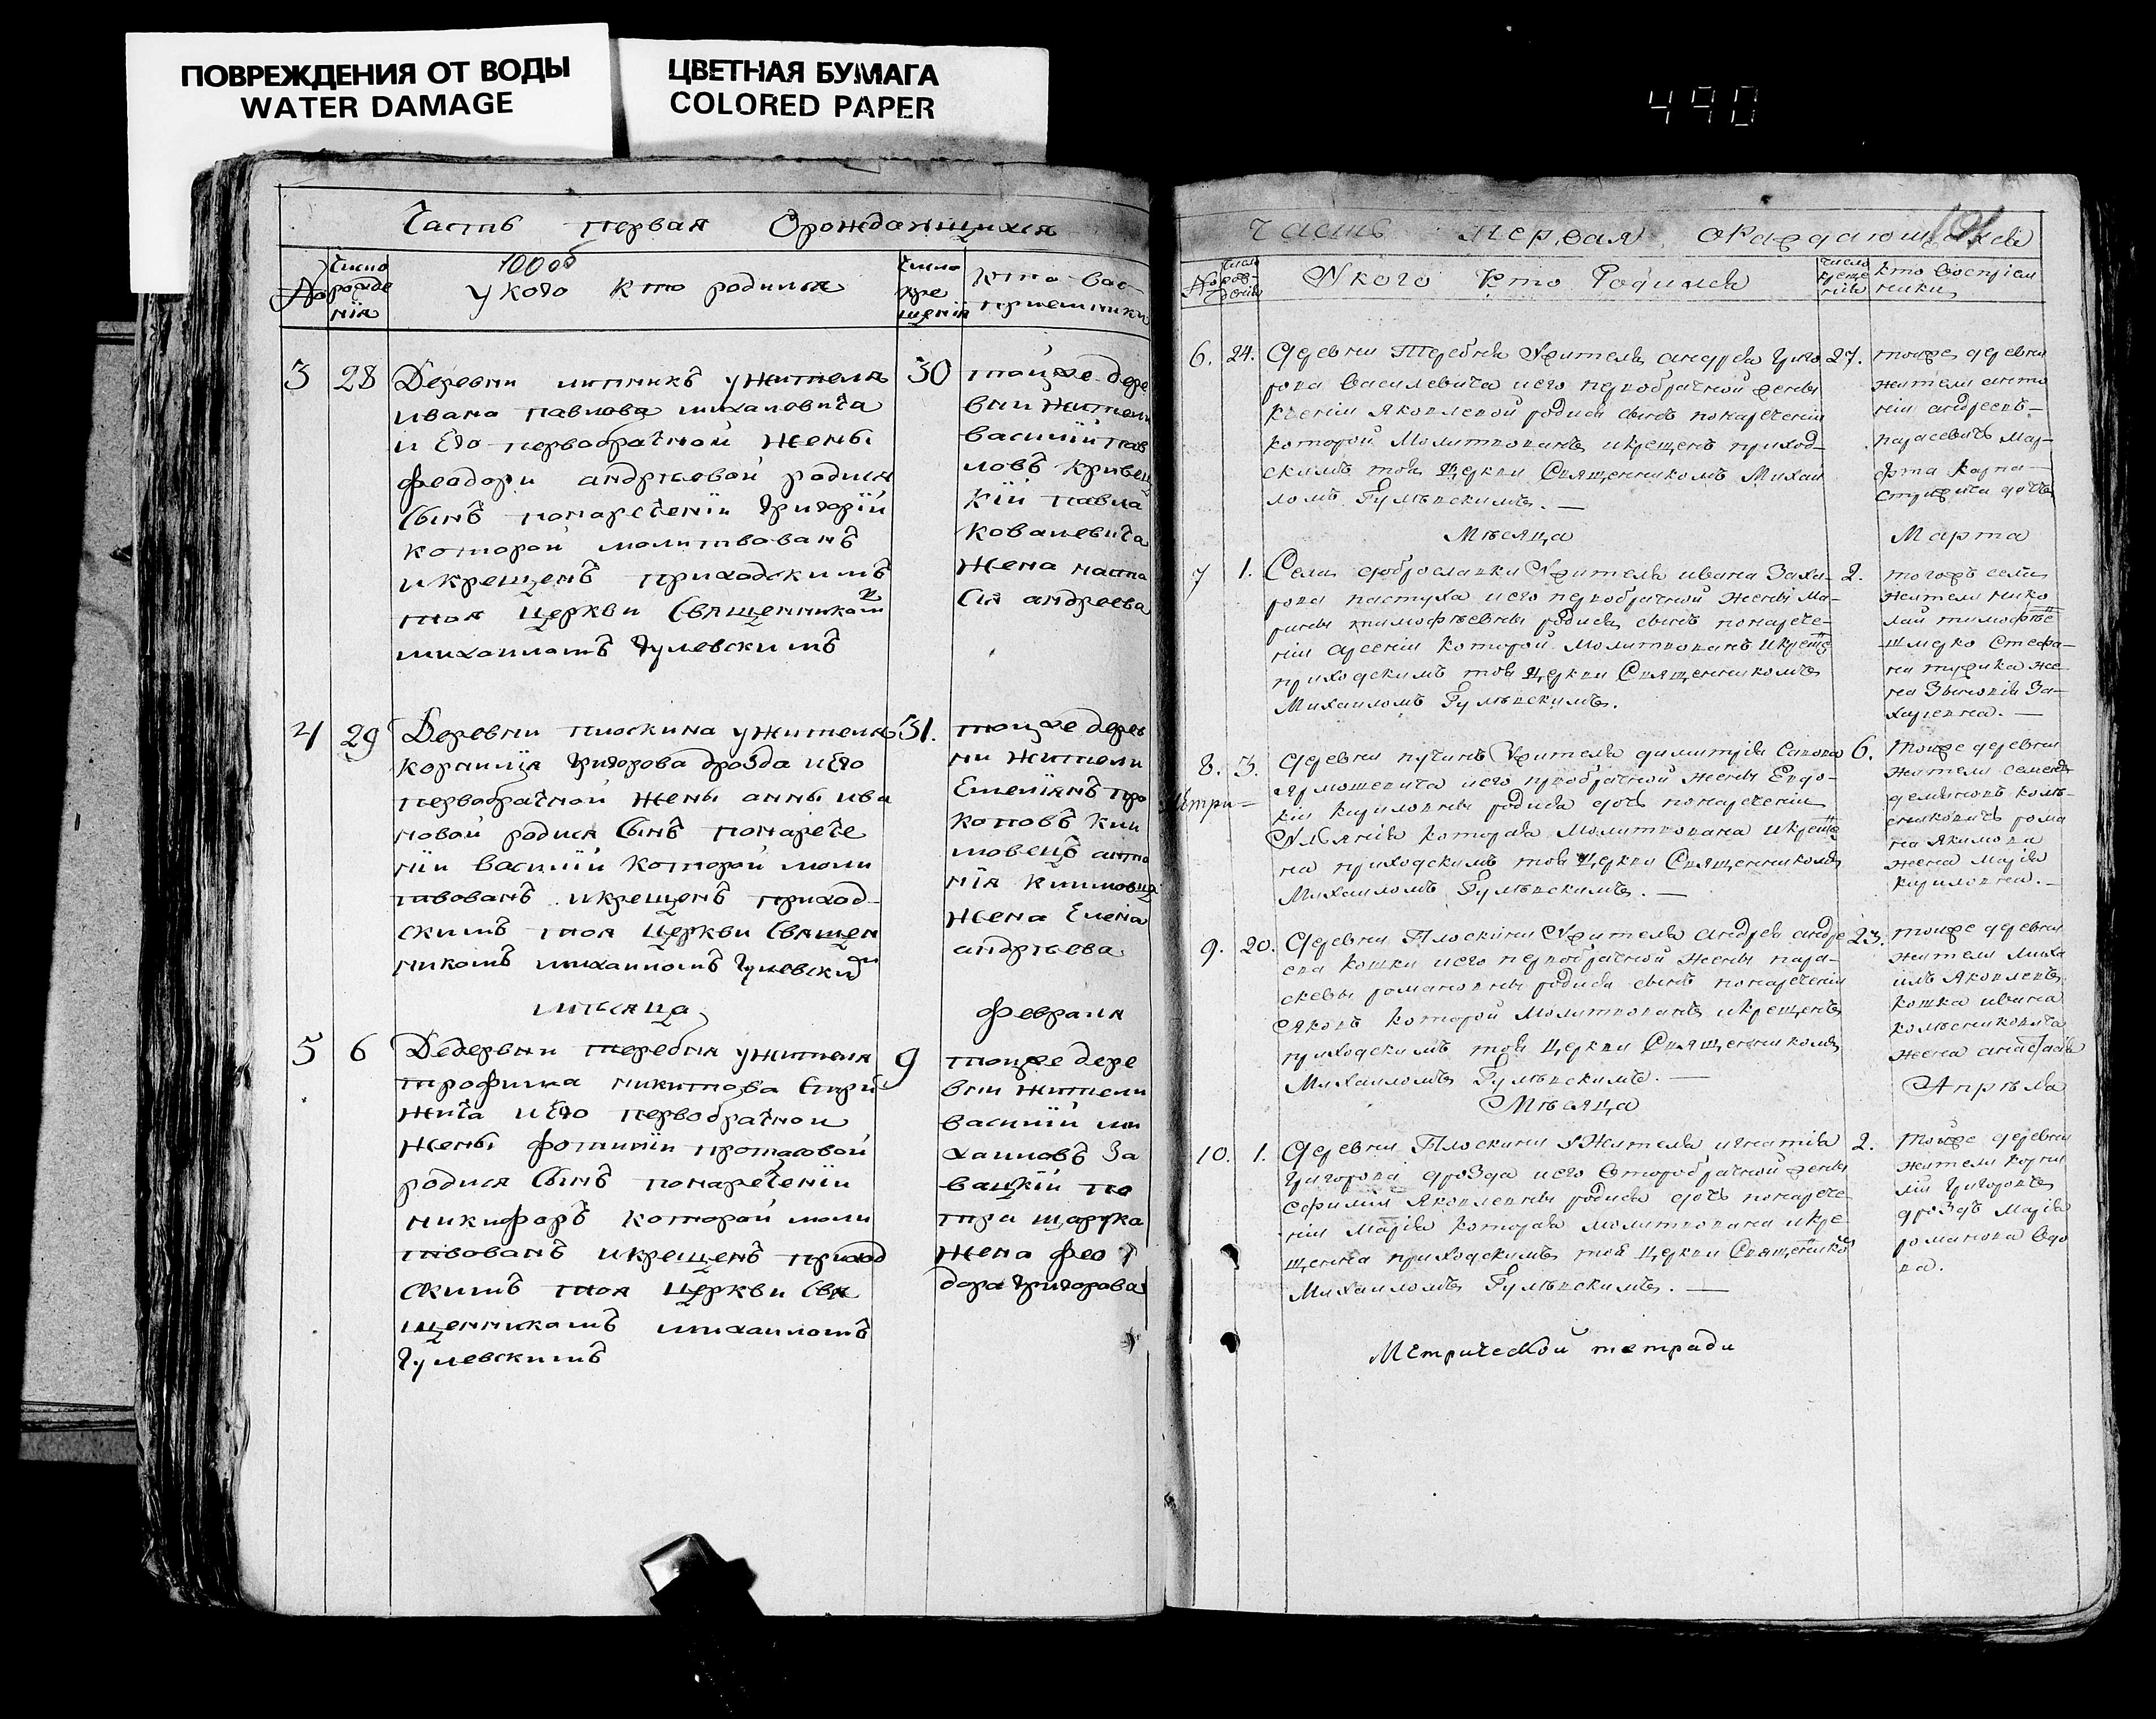 ПОВРЕЖДЕНИЯ ОТ ВОДЫ
WATER DAMAGE
ЦВЕТНАЯ БУМАГА
COLORED PAPER
490
Часть первая Орождающихся
100об
№
Число рожде нія
У кого кто родился
Число кре щенія
Кто вос приемники
3
28
Деревни липникъ ужителя
ивана павлова михаловича
и Его первобрачной жены
феодори андрѣевой родися
Сынъ понаречении Григорій
которой молитвованъ
икрещенъ приходскимъ
тоя церкви Священникомъ
михаиломъ Гулевскимъ
30
тоцже дере
вни жители
василій пав
ловъ кривец
кій павла
ковалевича
жена наста
сія андреева
4
29
Деревни плоскина ужителя
корнилія григорова дрозда иЕго
первобрачной жены анны ива
новой родися Сынъ понарече
ніи василій которой моли
твованъ икрещенъ приход
скимъ тоя церкви Священ
никомъ михаиломъ Гулевским
31.
тоцже дерев
ни жители
Емеліянъ про
коповъ кли
мовецъ анто
нія климовца
жена Елена
андрѣева
мѣсяца
февраля
5
6
Дедервни теребня ужителя
трофима никитова Стри
жича иЕго первобрачной
жены фотиніи протасовой
родися Сынъ понареченіи
никифоръ которой моли
твованъ икрещенъ приход
скимъ тоя церкви Свя
щенникомъ михаиломъ
Гулевскимъ
9
тоцже дере
вни жители
василій ми
хаиловъ За
вацкій пе
тра царука
жена фео
дора григорова
101
Часть Первая ораждающихся
№
число рож- денія
Укого кто Родился
число креще нія
кто воспріем ники
6.
24.
деревни Теребня Ужителя андрея Григо
рова василевича иего первобрачной жены
ксеніи яковлевой родися сынъ понареченіи
которой молитвованъ икрещенъ приход-
скимъ тоя Церкви Священникомъ Михаи
ломъ Гулѣвскимъ. —
27.
тоцже деревни
жители анто
ній андреевъ-
парасевичъ мар-
фта
дочь
Мѣсяца
Марта
7
1.
Села доброславки Ужителя ивана Заха-
рова пастуха иего первобрачной жены Ма-
рины тимофѣевны родися сынъ понарече-
ніи арсеній которой Молитвованъ Икреще
приходскимъ тоя Церкви Священникомъ
Михаиломъ Гулѣвскимъ.
2.
тогожъ села
жители нико
лай тимофѣе
шмерко Стефа-
на жена
Зѣновія За-
харевна. —
8.
3.
деревни пучинъ Ужителя димитрія Савова
ярмошевича иего првобрачной жены Евдо-
кіи кириловны родися дочь понареченіи
Мѣланія которая Молитвована икреще
на приходскимъ тоя Церкви Священникомъ
Михаиломъ Гулѣвскимъ. —
6.
тоцже деревни
жители семенъ
демяновъ колѣ-
сниковичъ рома
на якимова
жена Марія
кириловна. —
етри=
9.
20.
деревни Плоскини Ужителя андрея андре
ева кошки иего первобрачной жены пара-
скевы романовны родися сынъ понареченіи
яковъ которой Молитвованъ икрещенъ
приходскимъ тоя Церкви Священникомъ
Михаиломъ Гулѣвскимъ. —
23.
тоцже деревни
жители Миха
илъ яковлевъ
кошка ивана
колѣсниковича
жена анастасія
Мѣсяца
Апрѣля
10.
1.
деревни Плоскини УЖителя игнатія
григорова дрозда иего второбрачной жены
Софиліи яковлевны родися дочь понарече-
ніи Марія которая молитвована икре-
щенна приходскимъ тоя Церкви Священнико
Михаиломъ Гулѣвскимъ. —
2.
тойже деревни
жители корни
лій григоровъ
дроздъ Марія
романова вдо
ва.
Метрической тетради